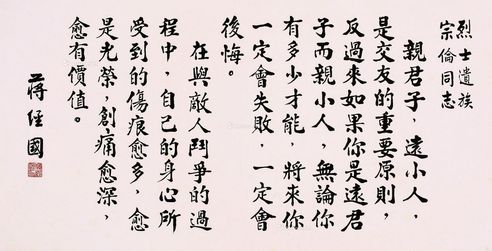 烈士遺族
宗倫同志
親君子，遠小人，
是交友的重要原則，
反過來如果你是遠君
子而親小人，無論你
有多少才能，將來你
一定會失敗，一定會
後悔。
在與敵人鬥爭的過
程中，自己的身心所
受到的傷痕愈多，愈
是光榮，創痛愈深，
愈有價值。
蔣經國